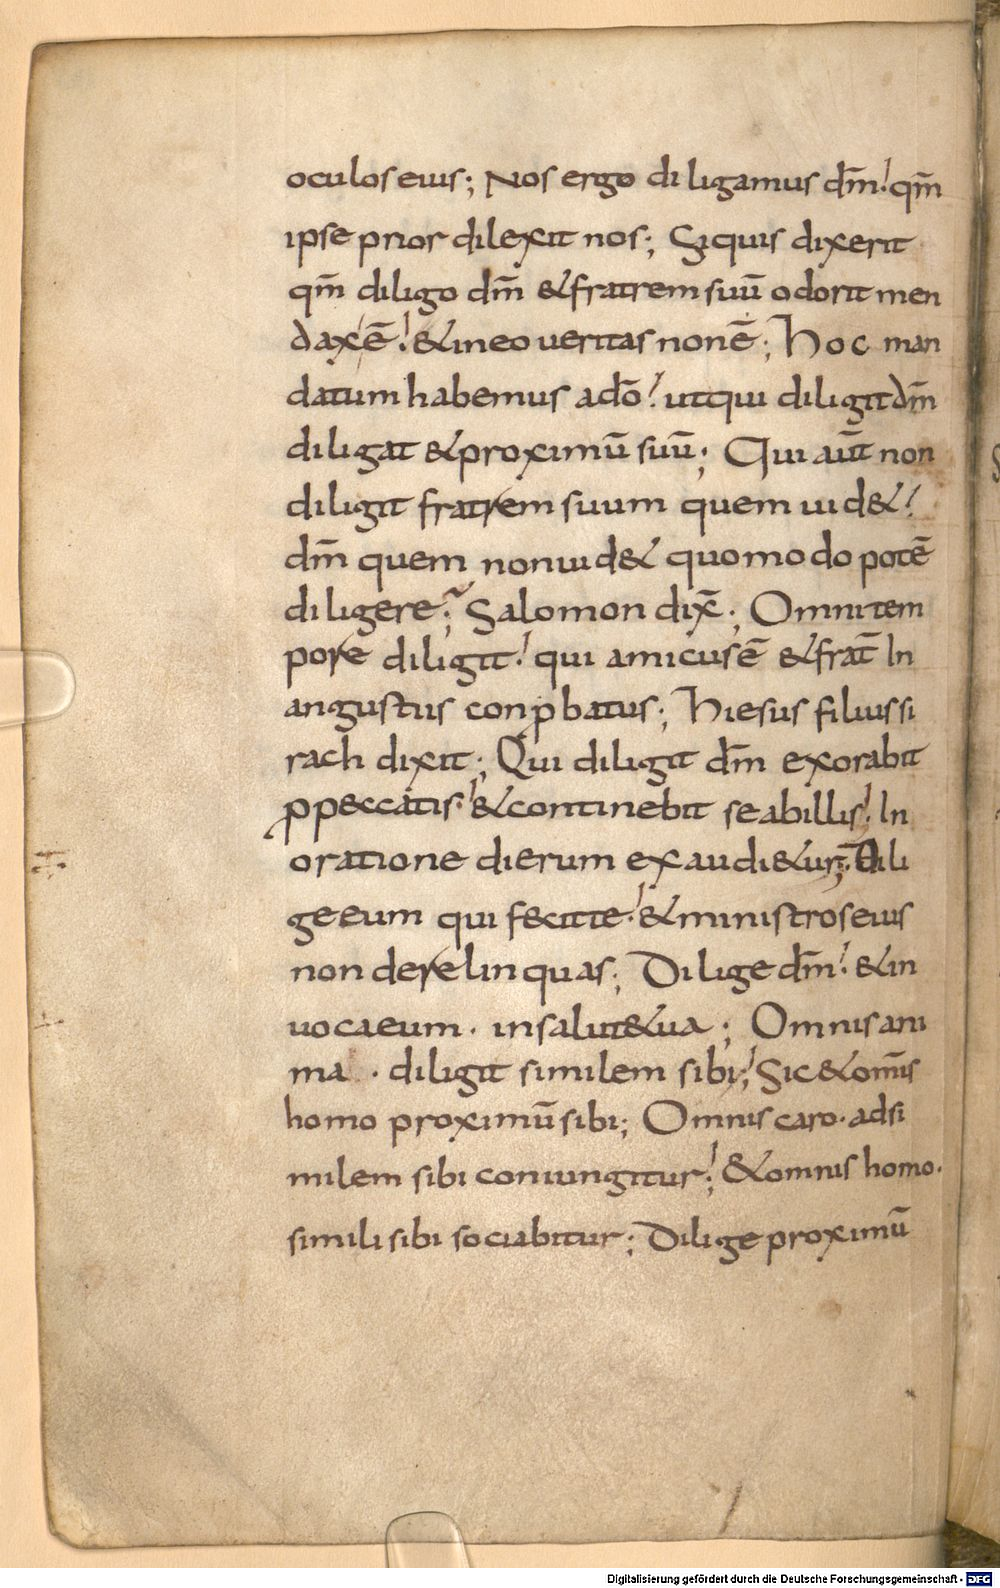 oculos eius; Nos ergo diligamus dm̄! qm̄
ipse prior dilexit nos; Si quis dixerit
qm̄ diligo dm̄ & fratrem suū odorit men
dax ē! & in eo ueritas non ē; Hoc man
datum habemus a dō! ut qui diligit dm̄
diligat & proximū suū; Qui aūt non
diligit fratrem suum quem uid&!
dm̄ quem non uid& quomodo potē
diligere; Salomon dix̄; Omni tem
pore diligit! qui amicus ē & frat̄ In
angustus conꝓbatus; Hiesus filius si
rach dixit; Qui diligit dm̄ exorabit
ꝓ p&ccatis! & continebit se ab illis! In
oratione dierum exaudi&ur; Dili
ge eum qui fecit te! & ministros eius
non derelinquas; Dilige dm̄! & in
uoca eum · in salut& ua; Omnis ani
ma · diligit similem sibi; Sic & om̄is
homo proximū sibi; Omnis caro · ad si
milem sibi coniungitur; & omnis homo ·
simili sibi sociabitur; Dilige proximū
Digitalisierung gefördert durch die Deutsche Forschungsgemeinschaft - DFG